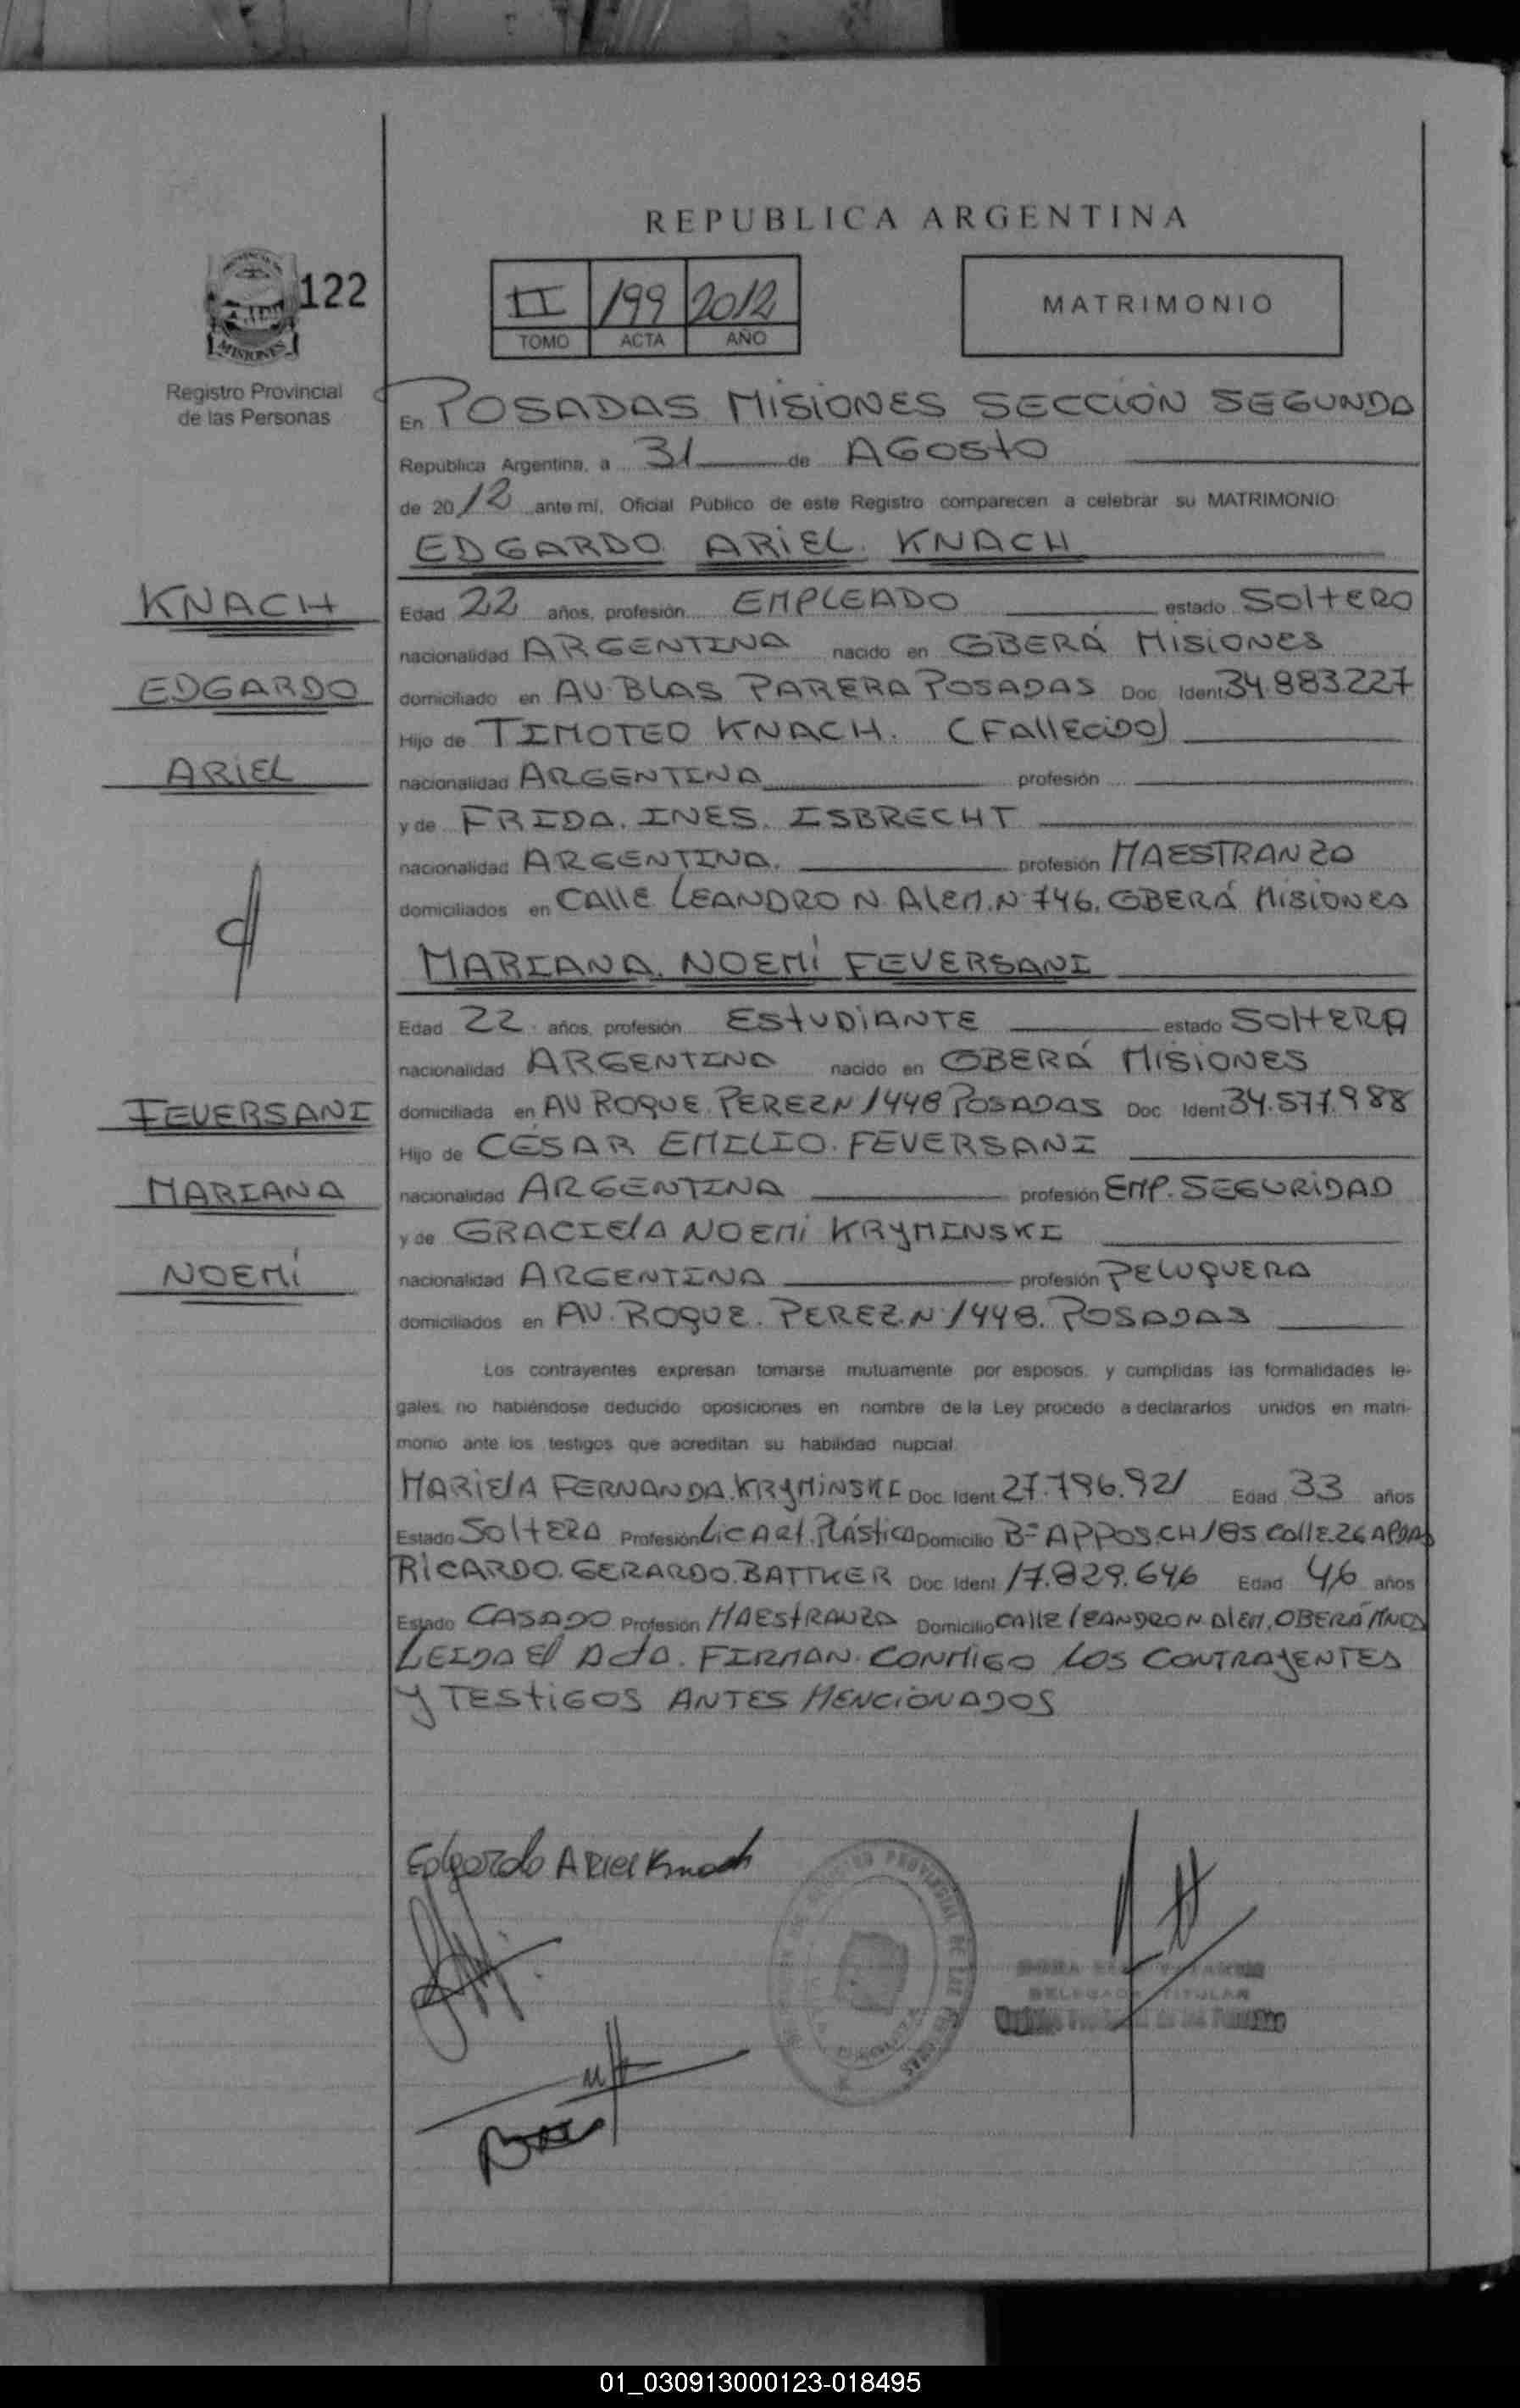 REPUBLICA ARGENTINA
122
MISIONES
Registro Provincial
de las Personas
II 199 2012
TOMO ACTA AÑO
MATRIMONIO
En POSADAS MISIONES SECCIÓN SEGUNDA
Republica Argentina, a 31 de AGOSTO
de 2012 ante mi, Oficial Publico de este Registro comparecen a celebrar su MATRIMONIO
EDGARDO ARIEL KNACH
KNACH
EDGARDO
ARIEL
Edad 22 años, profesión EMPLEADO estado SOLTERO
nacionalidad ARGENTINA nacido en OBERÁ MISIONES
domiciliado en AV. BLAS PARERA POSADAS Doc Ident 34.883.227
Hijo de TIMOTEO KNACH. (FALLECIDO)
nacionalidad ARGENTINA profesión
y de FRIDA. INES. ISBRECHT
nacionalidad ARGENTINA. profesión MAESTRANZO
domiciliados en CALLE LEANDRO N. ALEM. N° 746. OBERÁ MISIONES
MARIANA. NOEMÍ FEVERSANI
Edad 22 años, profesión ESTUDIANTE estado SOLTERA
nacionalidad ARGENTINA nacido en OBERÁ MISIONES
FEVERSANI
MARIANA
NOEMÍ
domiciliada en AV ROQUE PEREZ N° 1448 POSADAS Doc Ident 34.577.988
Hijo de CÉSAR EMILIO. FEVERSANI
nacionalidad ARGENTINA profesión EMP. SEGURIDAD
y de GRACIELA NOEMÍ KRYMINSKI
nacionalidad ARGENTINA profesión PELUQUERA
domiciliados en AV. ROQUE. PEREZ. N° 1448. POSADAS
Los contrayentes expresan tomarse mutuamente por esposos, y cumplidas las formalidades le-
gales, no habiéndose deducido oposiciones en nombre de la Ley procedo a declararlos unidos en matri-
monio ante los testigos que acreditan su habilidad nupcial
MARIELA FERNANDA. KRYMINSKI Doc Ident 27.796.921 Edad 33 años
Estado SOLTERA Profesión LIC ART. PLÁSTICA Domicilio B° APPOS. CH 185 CALLE 26
RICARDO. GERARDO. BATTKER Doc Ident 17.829.646 Edad 46 años
Estado CASADO Profesión MAESTRANZA Domicilio CALLE LEANDRO N ALEM, OBERÁ MNES
LEIDA EL ACTA. FIRMAN. CONMIGO LOS CONTRAYENTES
Y TESTIGOS ANTES MENCIONADOS
Edgardo Ariel Knach
DELEGADA TITULAR
01_030913000123-018495